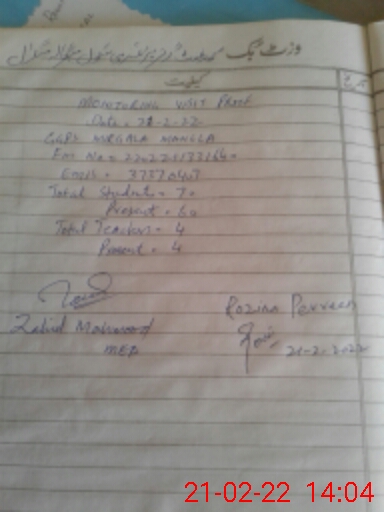 وزٹ بک گورنمنٹ گرلز پرائمری سکول
کیفیت
تاریخ
MONITORING VISIT PROOF
Date = 21-2-22
GGPS MIRGALA MANGLA
Total Students = 70
Present = 60
Total Teachers = 4
Present = 4
Zahid Mahmood
MEA
Rozina Perveen
21-2-2022
21-02-22 14:04